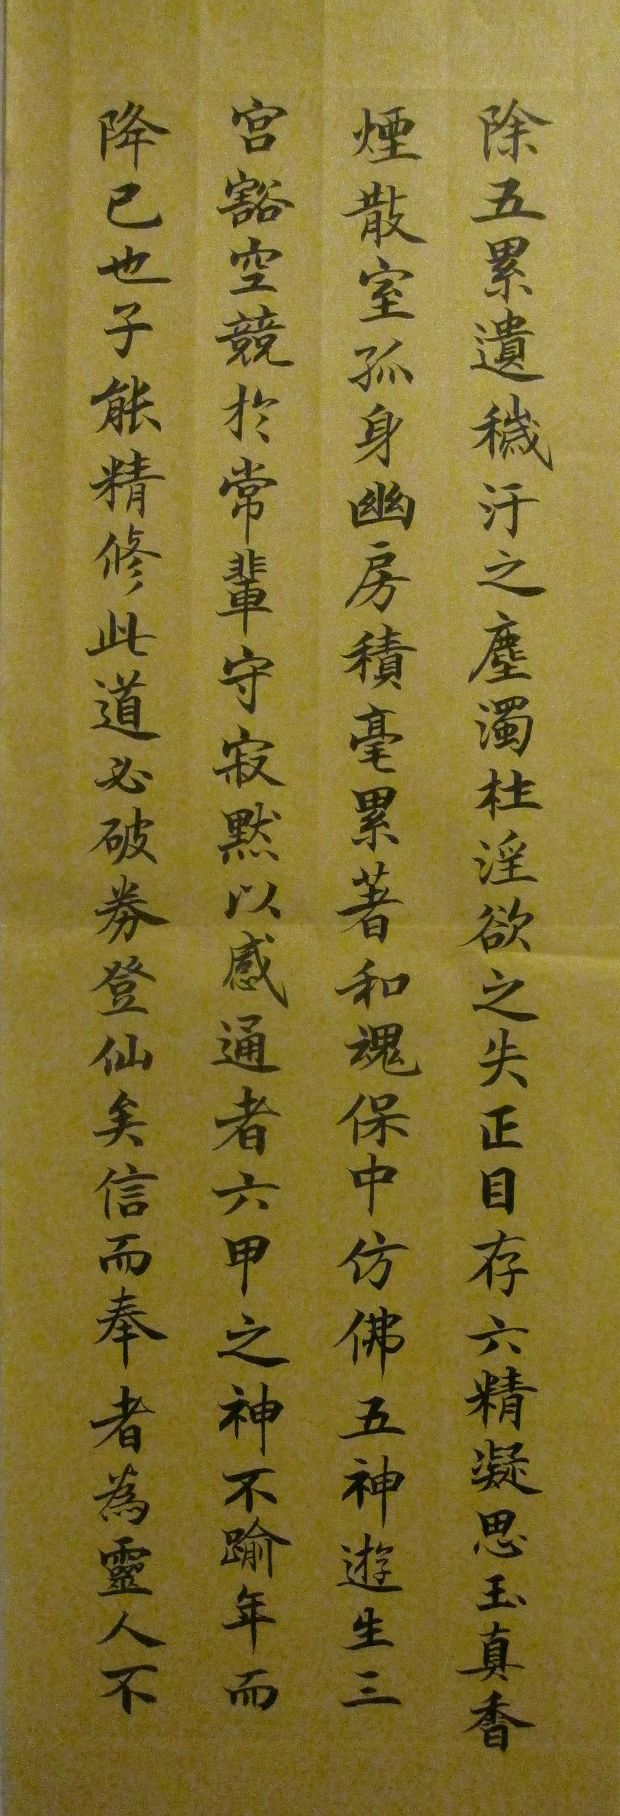 除五累遺穢汙之塵濁杜淫欲之失正目存六精凝思玉真香
煙散室孤身幽房積毫累著和魂保中仿佛五神遊生三
宮豁空競於常輩守寂默以感通者六甲之神不踰年而
降已也子能精修此道必破券登仙矣信而奉者為靈人不